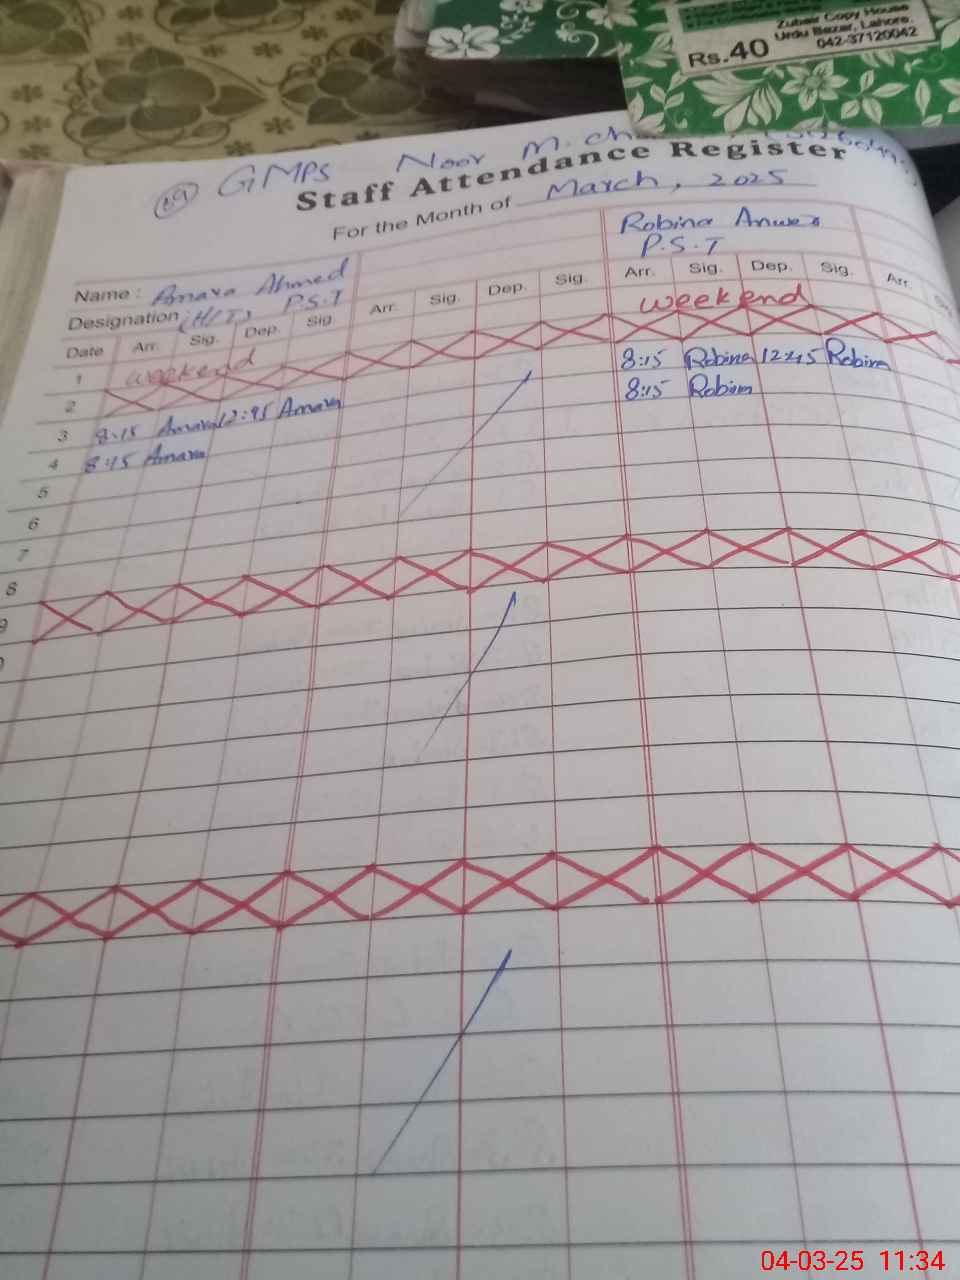 Zubair Copy House
Urdu Bazar, Lahore.
Rs.40 042-37120042
69 GMPS Noor M.
Staff Attendance Register
For the Month of March, 2025
Robina Anwer
P.S.T
Name : Amara Ahmed
Designation (H/T) P.S.T
Date Arr. Sig. Dep. Sig. Arr. Sig. Dep. Sig. Arr. Sig. Dep. Sig. Arr.
1 weekend weekend
2
3 8:15 Amara 12:45 Amara 8:15 Robina 12:45 Robina
4 8:15 Amara 8:15 Robina
5
6
7
8
9
04-03-25 11:34